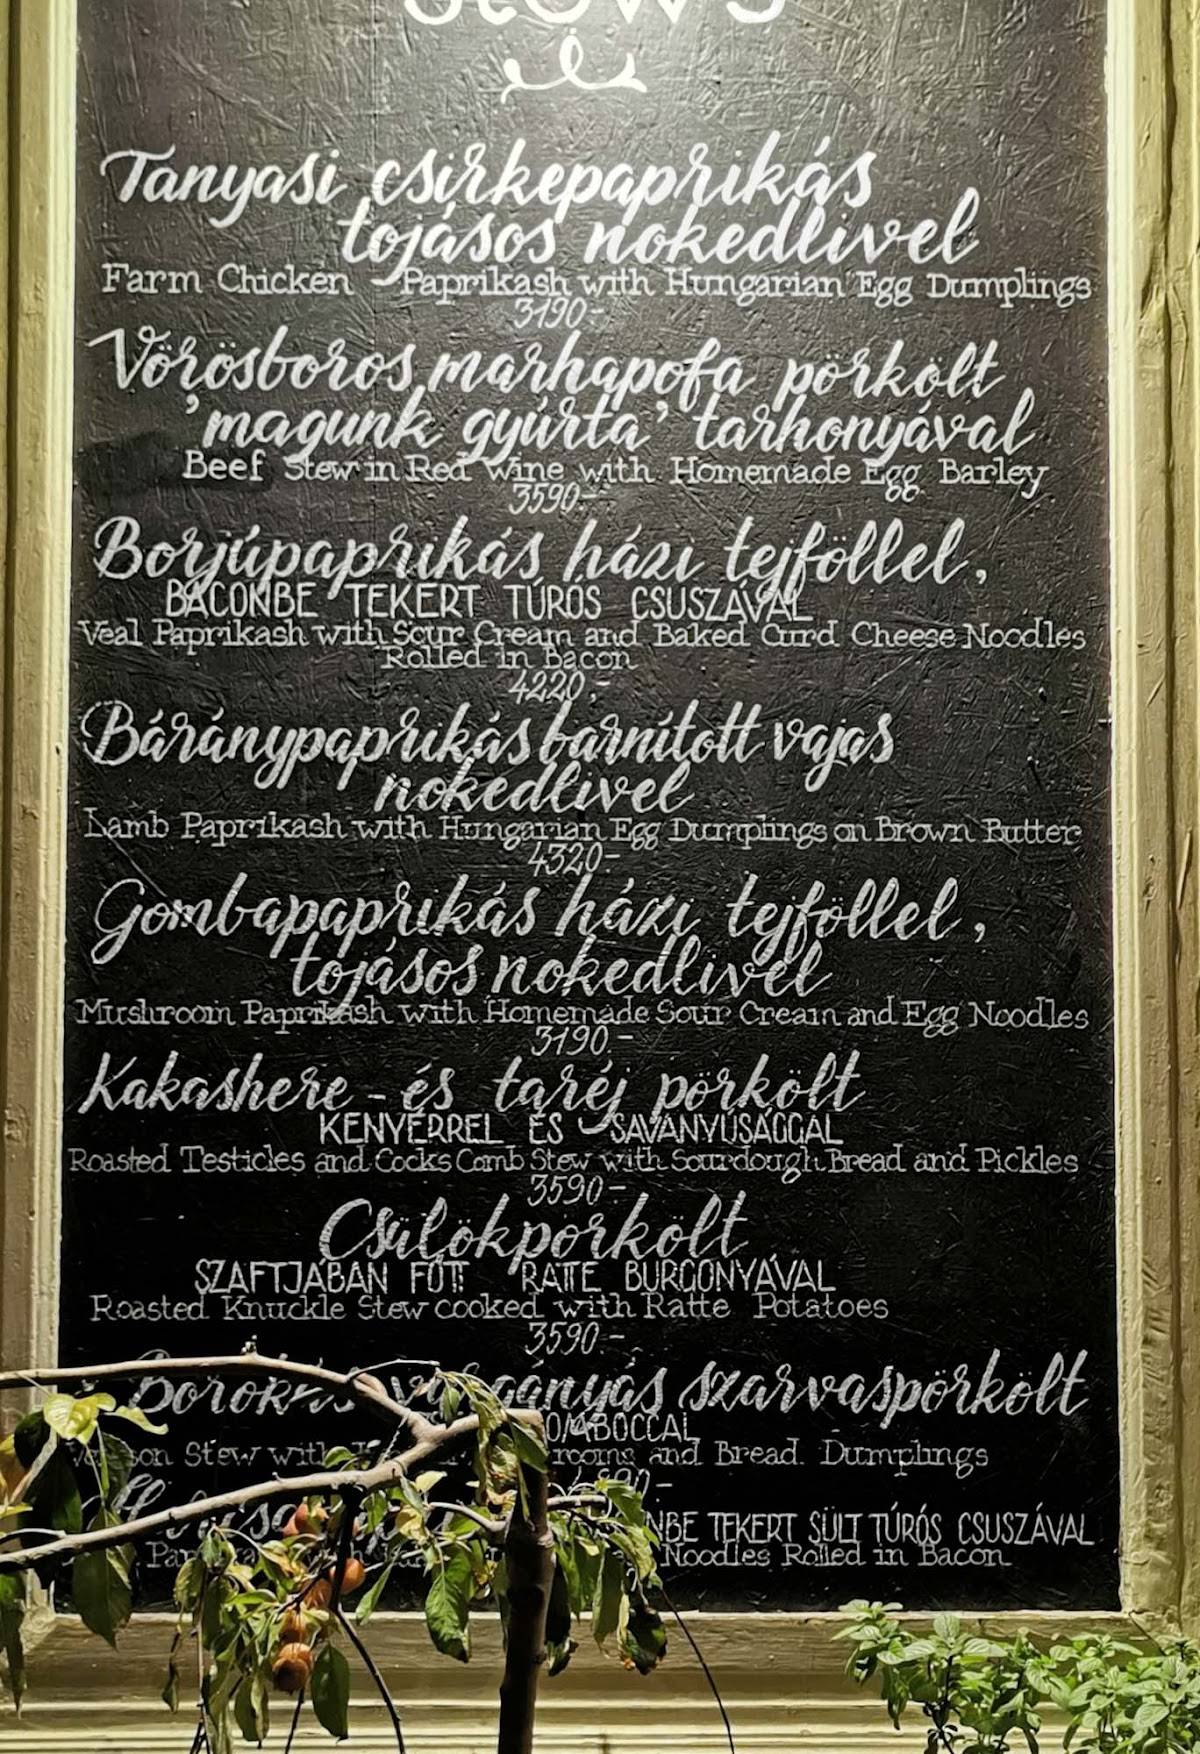 Stews
Tanyasi csirkepaprikás
tojásos nokedlivel
Farm Chicken Paprikash with Hungarian Egg Dumplings
3190-
Vörösboros marhapofa pörkölt
'magunk gyúrta' tarhonyával
Beef Stew in Red Wine with Homemade Egg Barley
3590-
Borjúpaprikás házi tejföllel,
BACONBE TEKERT TÚRÓS CSUSZÁVAL
Veal Paprikash with Sour Cream and Baked Curd Cheese Noodles
Rolled in Bacon
4220,-
Báránypaprikás barnított vajas
nokedlivel
Lamb Paprikash with Hungarian Egg Dumplings on Brown Butter
4320-
Gombapaprikás házi tejföllel,
tojásos nokedlivel
Mushroom Paprikash with Homemade Sour Cream and Egg Noodles
3190,-
Kakashere - és taréj pörkölt
KENYÉRREL ÉS SAVANYÚSÁGGAL
Roasted Testicles and Cocks Comb Stew with Sourdough Bread and Pickles
3590-
Csülökpörkölt
SZAFTJÁBAN FŐTT RATTE BURGONYÁVAL
Roasted Knuckle Stew cooked with Ratte Potatoes
3590-
szarvaspörkölt
Stew with and Bread Dumplings
TEKERT SÜLT TÚRÓS CSUSZÁVAL
Noodles Rolled in Bacon